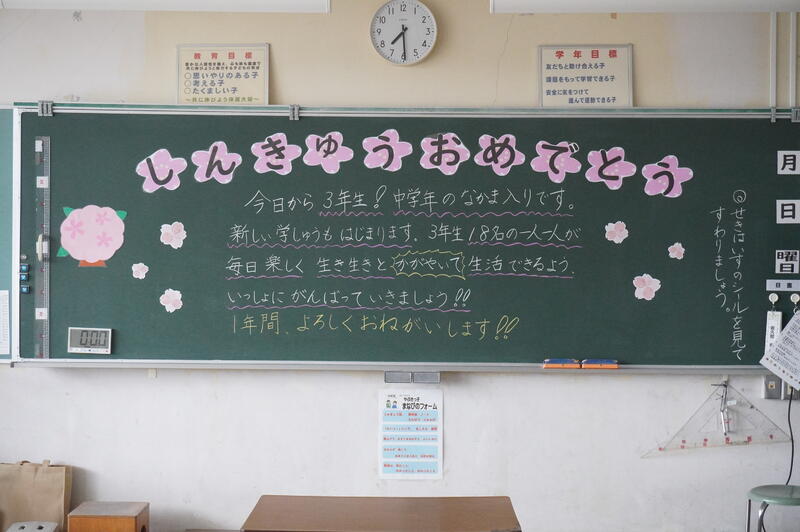 教育目標
○思いやりのある子
○考える子
○たくましい子
学年目標
友だちと助け合える子
課題をもって学習できる子
安全に気をつけて
進んで運動できる子
しんきゅうおめでとう
今日から3年生!中学年のなかま入りです。
新しい学しゅうもはじまります。3年生18名の一人一人が
毎日楽しく生き生きとかがやいて生活できるよう、
いっしょにがんばっていきましょう!!
1年間、よろしくおねがいします!!
◎せきはいすのシールを見て
すわりましょう。
月
日
曜
日直
000
まなびのフォーム